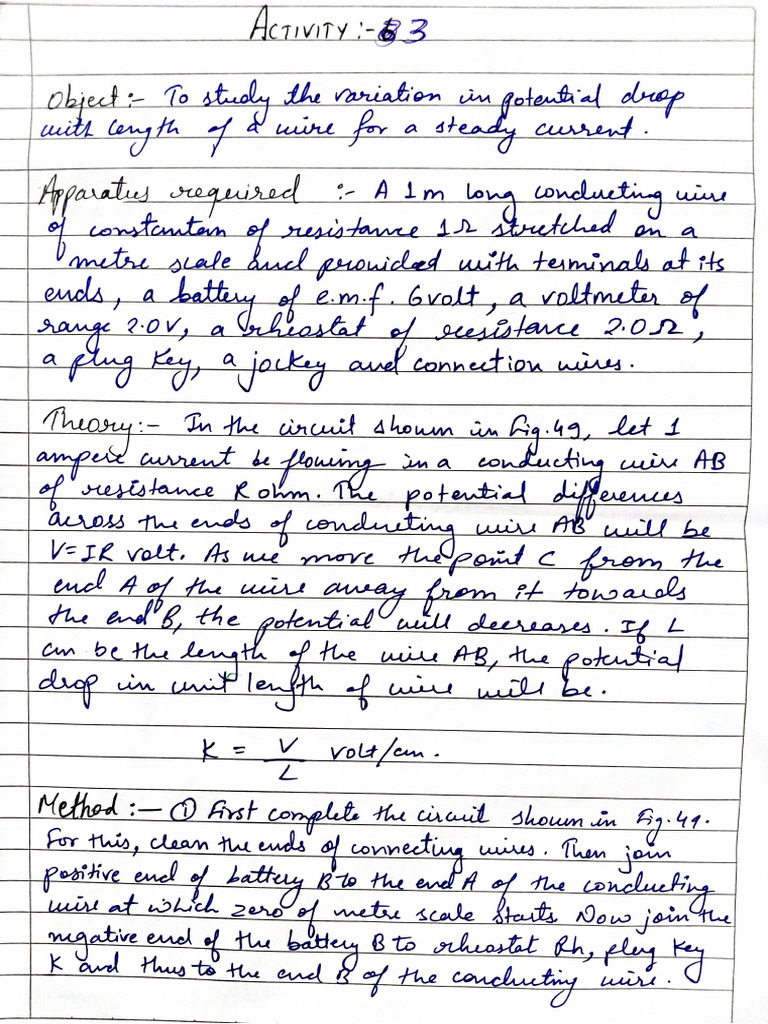 ACTIVITY :- 3
Object :- To study the variation in potential drop
with length of a wire for a steady current.
Apparatus required :- A 1m long conducting wire
of constantan of resistance 1Ω stretched on a
metre scale and provided with terminals at its
ends, a battery of e.m.f. 6volt, a voltmeter of
range 2.0V, a rheostat of resistance 2.0Ω,
a plug key, a jockey and connection wires.
Theory :- In the circuit shown in Fig. 49, let 1
ampere current be flowing in a conducting wire AB
of resistance R ohm. The potential differences
across the ends of conducting wire AB will be
V=IR volt. As we move the point C from the
end A of the wire away from it towards
the end B, the potential will decreases. If L
cm be the length of the wire AB, the potential
drop in unit length of wire will be.
K = V/L volt/cm.
Method :- ① First complete the circuit shown in Fig. 49.
For this, clean the ends of connecting wires. Then join
positive end of battery B to the end A of the conducting
wire at which zero of metre scale starts. Now join the
negative end of the battery B to rheostat Rh, plug key
K and thus to the end B of the conducting wire.